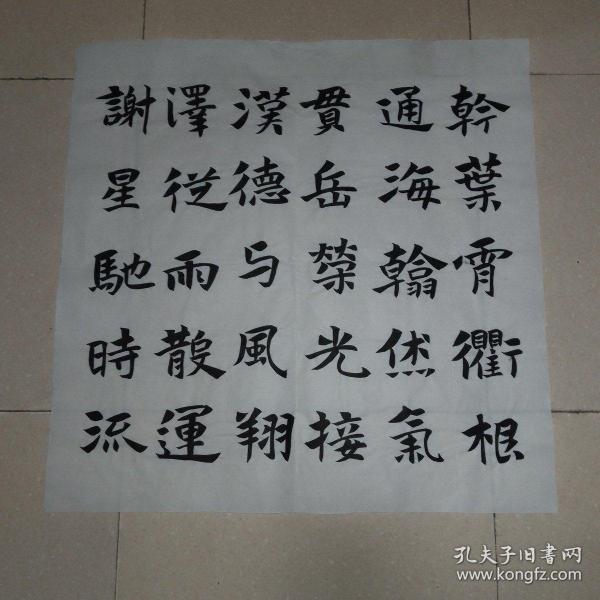 幹葉霄衢根
通海翰烋氣
貫岳榮光接
漢德与風翔
澤從雨散運
謝星馳時流
孔夫子旧書网
www.kongfz.com